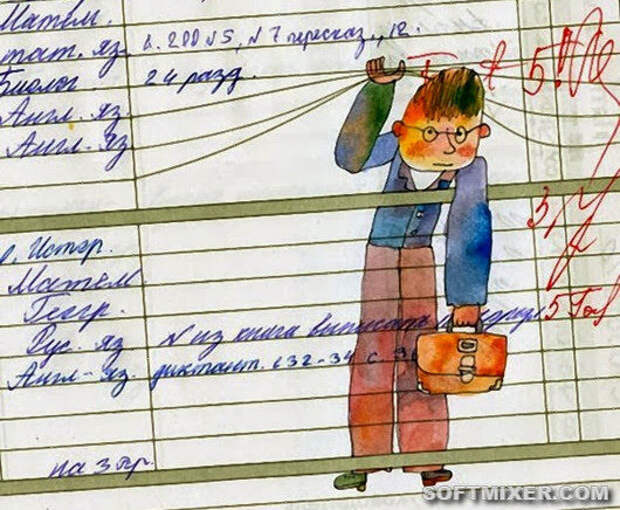 Матем.
тат. яз. с. 200 №5, №7 пересказ., 12.
Биолог. 24 разд. 5!
Англ. яз.
Англ. яз 3,
р. Истор.
Матем.
Геогр. 5
Рус. яз № из книги выписать
Англ. яз. диктант. с 32-34 с.
на 3 тр.
SOFTMIXER.COM